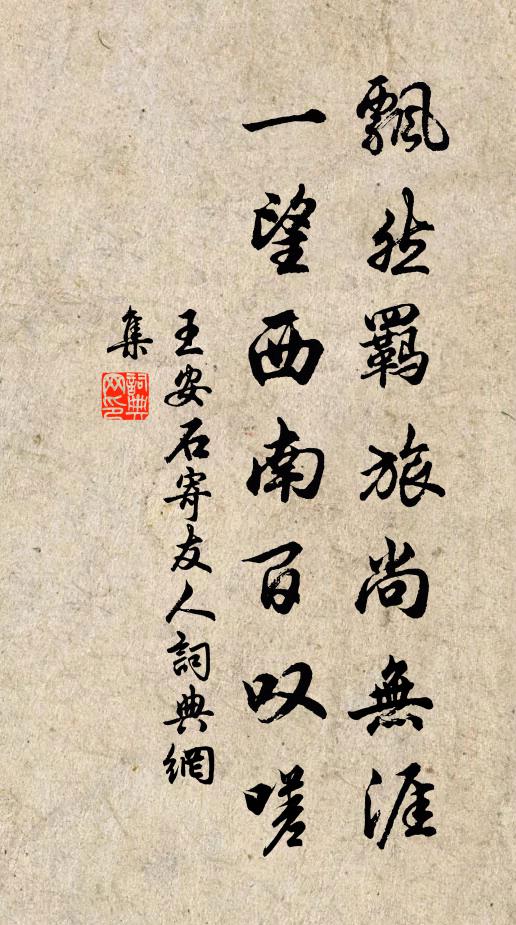 飄然羈旅尚無涯
一望西南百叹嗟
王安石寄友人詞典網
集
詞典
网印